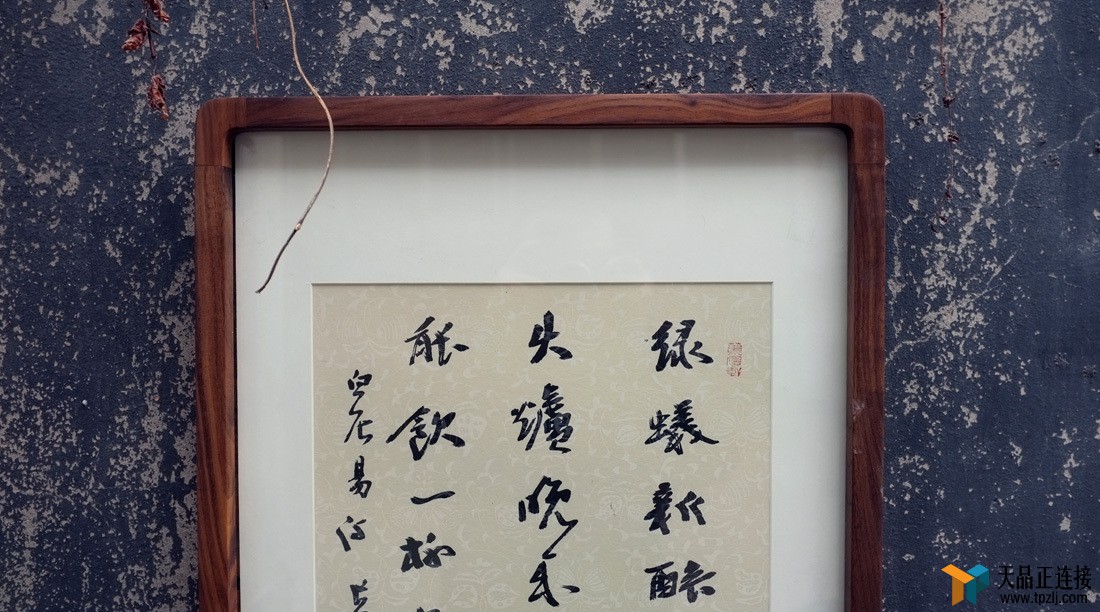 绿蟻新醅
火爐晚来
能飲一杯
白居易诗
天品正连接
www.tpzlj.com